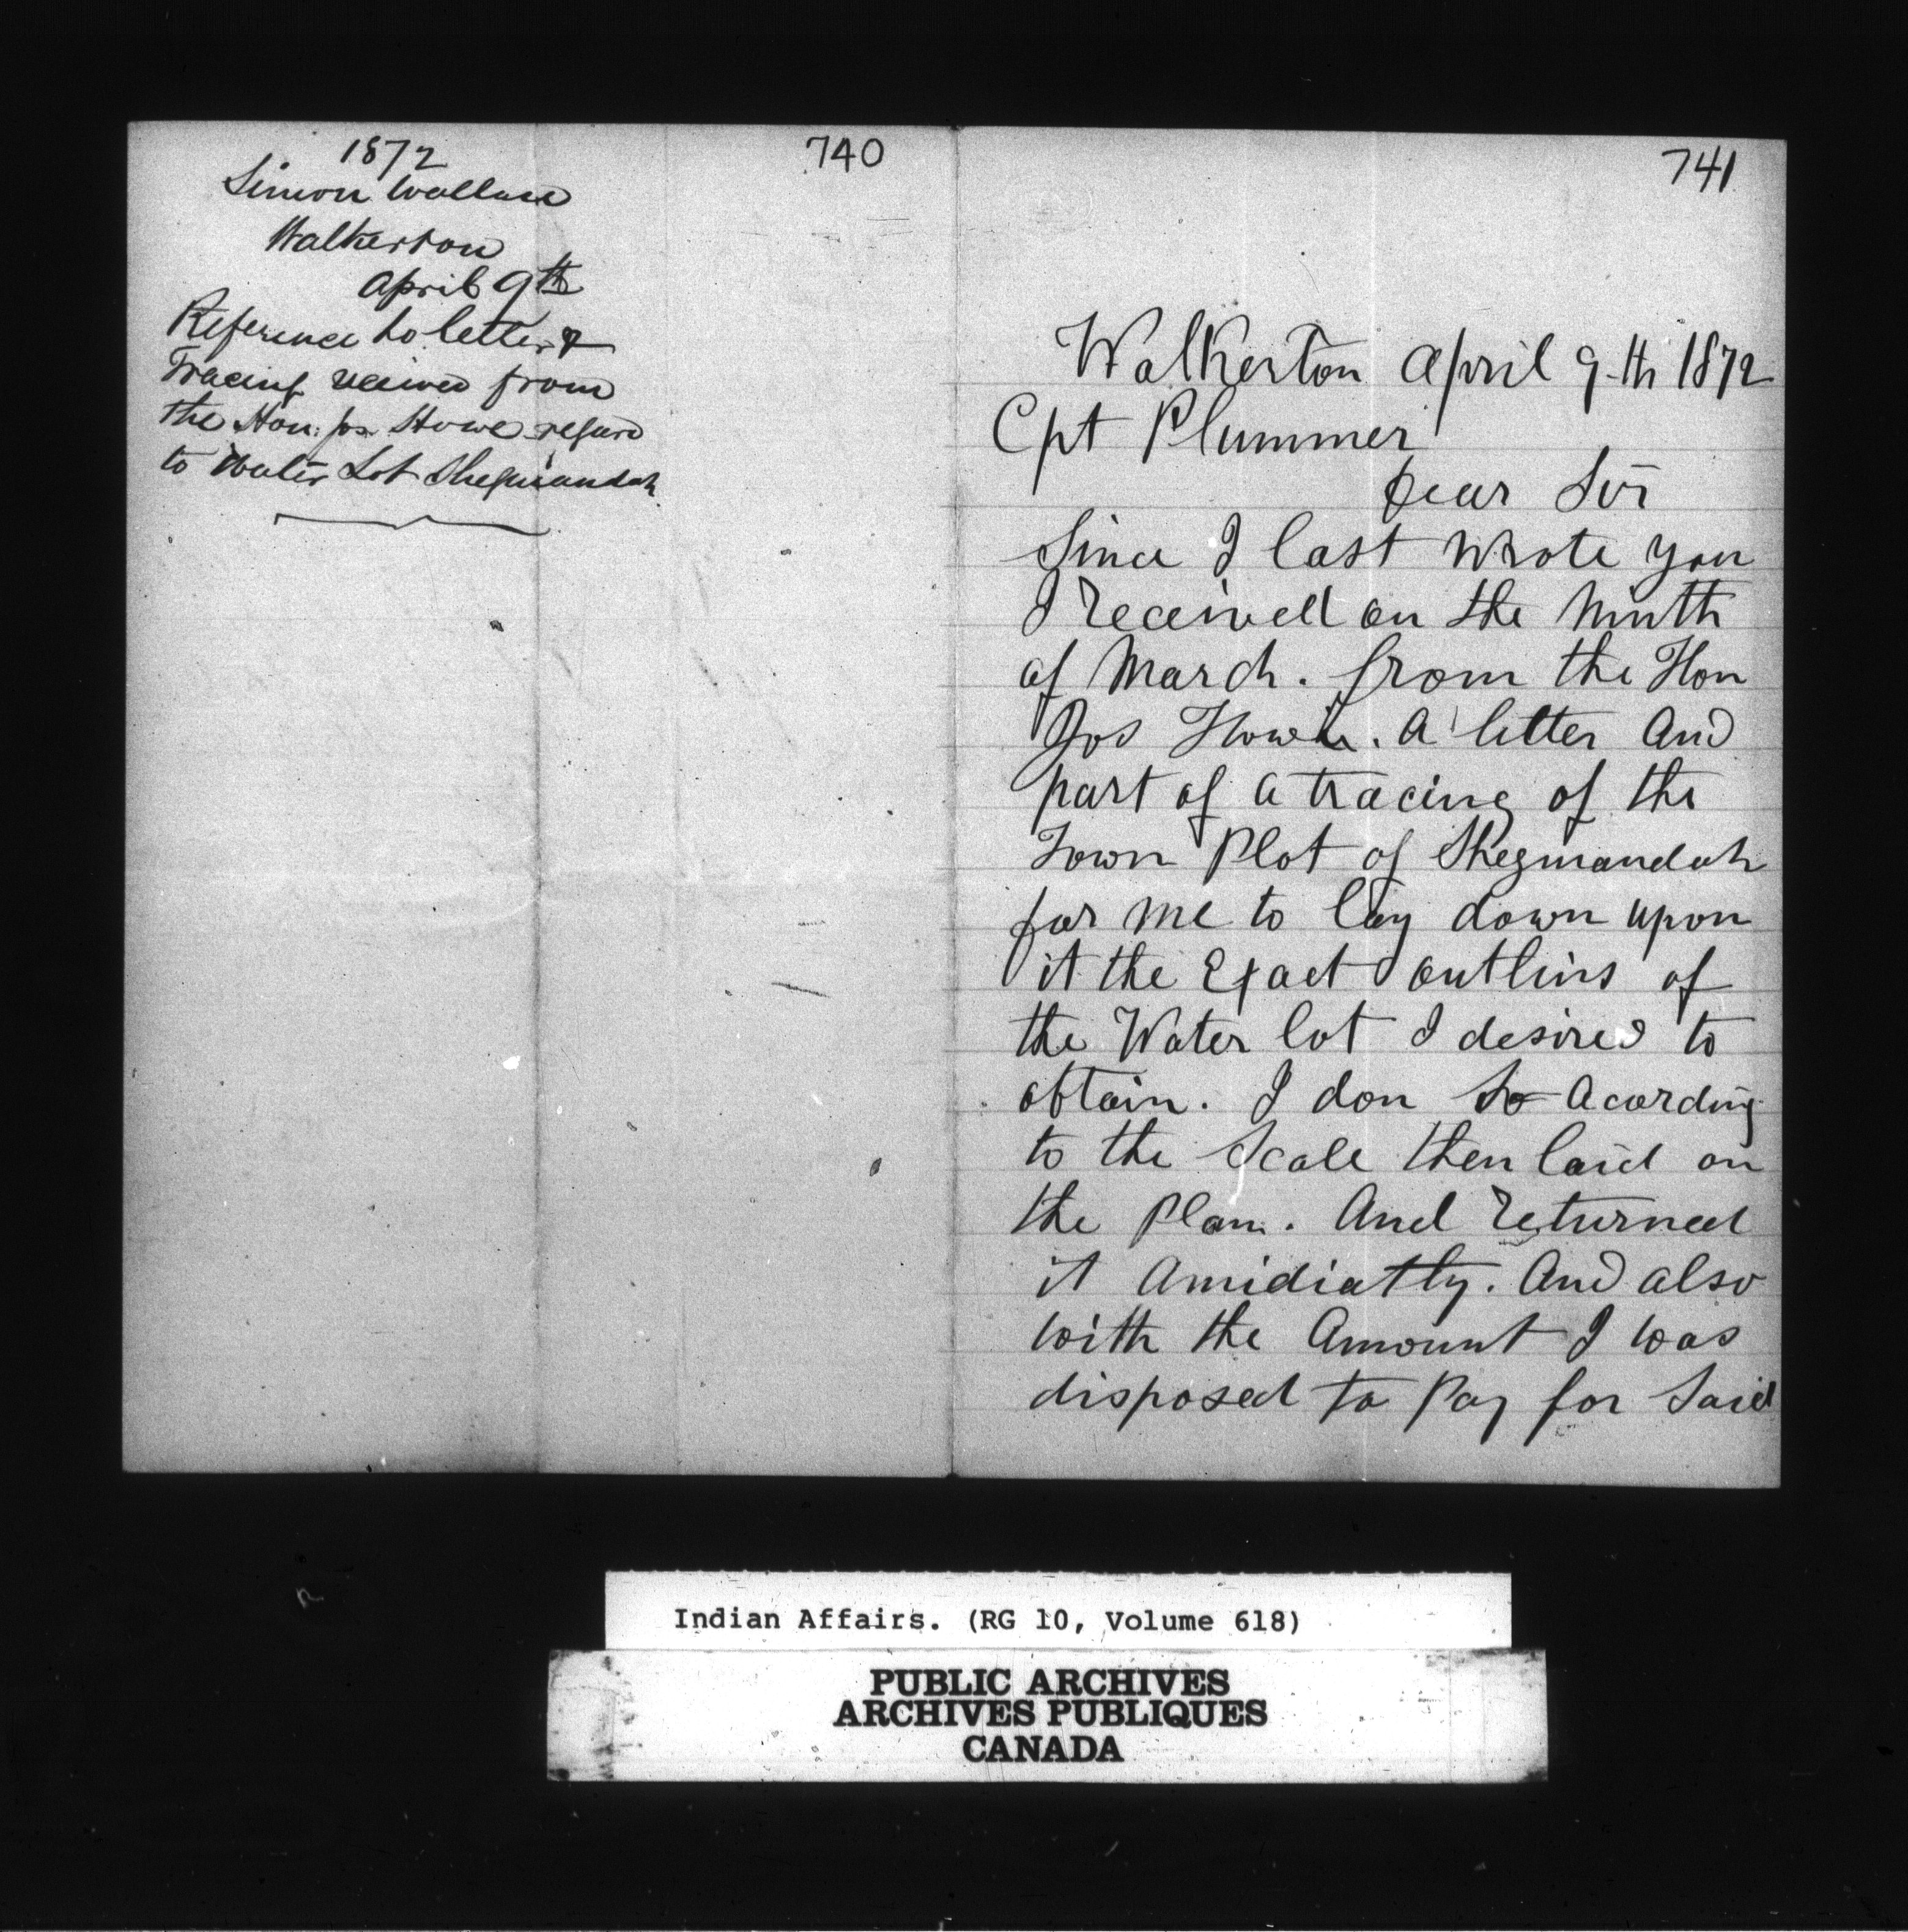 740
1872
Simon Wallace
Walkerton
April 9th
Reference to letter &
Tracing received from
the Hon: Jos. Howe regard
to Water Lot Sheguiandah
741
Walkerton April 9th 1872
Cpt Plummer
Dear Sir
Since I last Wrote you
I Received on the Ninth
of March. from the Hon
Jos Howe. A letter And
part of a tracing of the
Town Plot of Shegmandah
for me to lay down upon
it the Exact outlins of
the Water lot I desired to
obtain. I don So Acording
to the Scale then laid on
the Plan. And Returned
it Amidiatly. And also
with the Amount I was
disposed to Pay for Said
Indian Affairs. (RG 10, Volume 618)
PUBLIC ARCHIVES
ARCHIVES PUBLIQUES
CANADA